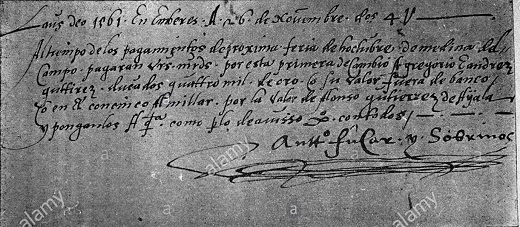 Laus deo 1561. En Enberes. A 26 de Novienbre. dos 4V
Al tiempo de los pagamientos de proxima feria de hoctubre. de medina del
Campo. pagaran vrs. mrds. por esta primera de canbio A gregorio
gutierez. ducados quattro mil. de oro. o su valor fuera de banco
Con el cinco Al millar. por la valor de Alonso gutierrez de
y ponganlos A como contados
Antto. fucar. y Sobrinos
alamy
a
alamy